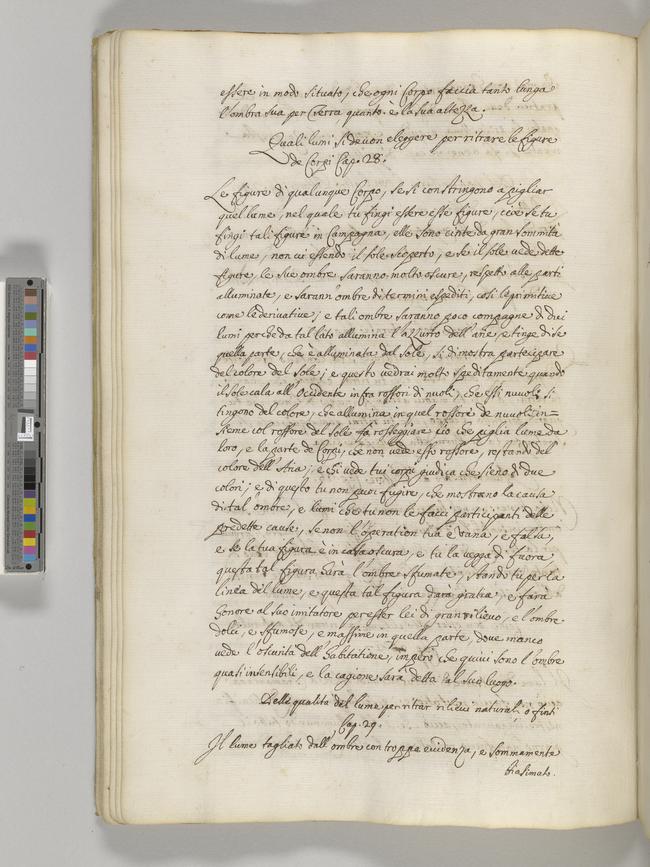 essere in modo situato, che ogni Corpo faccia tanto lunga
l'ombra sua per Terra quanto è la sua altezza.
Quali lumi si devon eleggere per ritrar le figure
de Corpi Cap. 28.
Le figure di qualunque Corpo, se si constringono a pigliar
quel lume, nel quale tu fingi essere esse figure, cioè se tu
fingi tali figure in Campagna, elle sono cinte da gran sommità
di lume, non vi essendo il sole scoperto, e se il sole vede dette
figure, le sue ombre saranno molto oscure, respetto alle parti
alluminate, e sarann' ombre di termini espediti, così le primitive
come le derivative; e tali ombre saranno poco compagne di dui
lumi perche da tal lato allumina l'azzurro dell'aire, e tinge di se
quella parte, che è alluminata dal sole, si dimostra partecipare
del colore del sole; e questo vedrai molto speditamente quando
il sole cala all'Occidente infra rossori di nuoli, che essi nuvoli si
tingono del colore, che allumina, in quel rossore de nuvoli in=
sieme col rossore del sole fa rosseggiare ciò che piglia lume da
loro, e la parte de Corpi, che non vede esso rossore, resta del
colore dell'Aria; e chi vede tui corpi giudica che sieno di due
colori; e di questo tu non puoi fugire, che mostrano la causa
di tal' ombre, e lumi che tu non le facci participanti delle
predette cause, se non l'operation tua è vana, e falsa,
e se la tua figura è in casa oscura, e tu la vegga di fuora
questa tal figura harà l'ombre sfumate, stando tu per la
linea del lume, e questa tal figura darà gratia, e farà
honore al suo imitatore per esser lei di gran rilievo, e l'ombre
dolci, e sfumose, e massime in quella parte, dove manco
vede l'oscurità dell'habitatione, imperò che quivi sono l'ombre
quasi insensibili, e la cagione sarà detta al suo luogo.
Delle qualità del lume per ritrar rilievi naturali, ò finti
Cap. 29.
Il lume tagliato dall'ombre con troppa evidenza, e sommamente
biasimato.